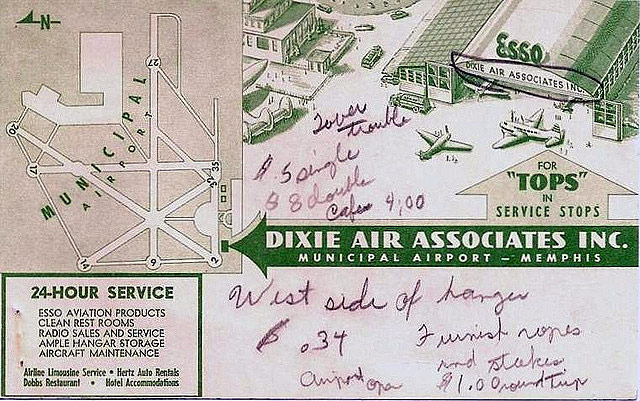 N
27
MUNICIPAL
AIRPORT
20
17
35
14
6
2
ESSO
DIXIE AIR ASSOCIATES INC.
Tower
trouble
$.5 single
$ 8 double
Cafe 4;00
FOR
"TOPS"
IN
SERVICE STOPS
DIXIE AIR ASSOCIATES INC.
MUNICIPAL AIRPORT – MEMPHIS
24-HOUR SERVICE
ESSO AVIATION PRODUCTS
CLEAN REST ROOMS
RADIO SALES AND SERVICE
AMPLE HANGAR STORAGE
AIRCRAFT MAINTENANCE
Airline Limousine Service • Hertz Auto Rentals
Dobbs Restaurant • Hotel Accommodations
West side of hanger
.34
Airport
Furnish ropes
and stakes
$1.00 round trip